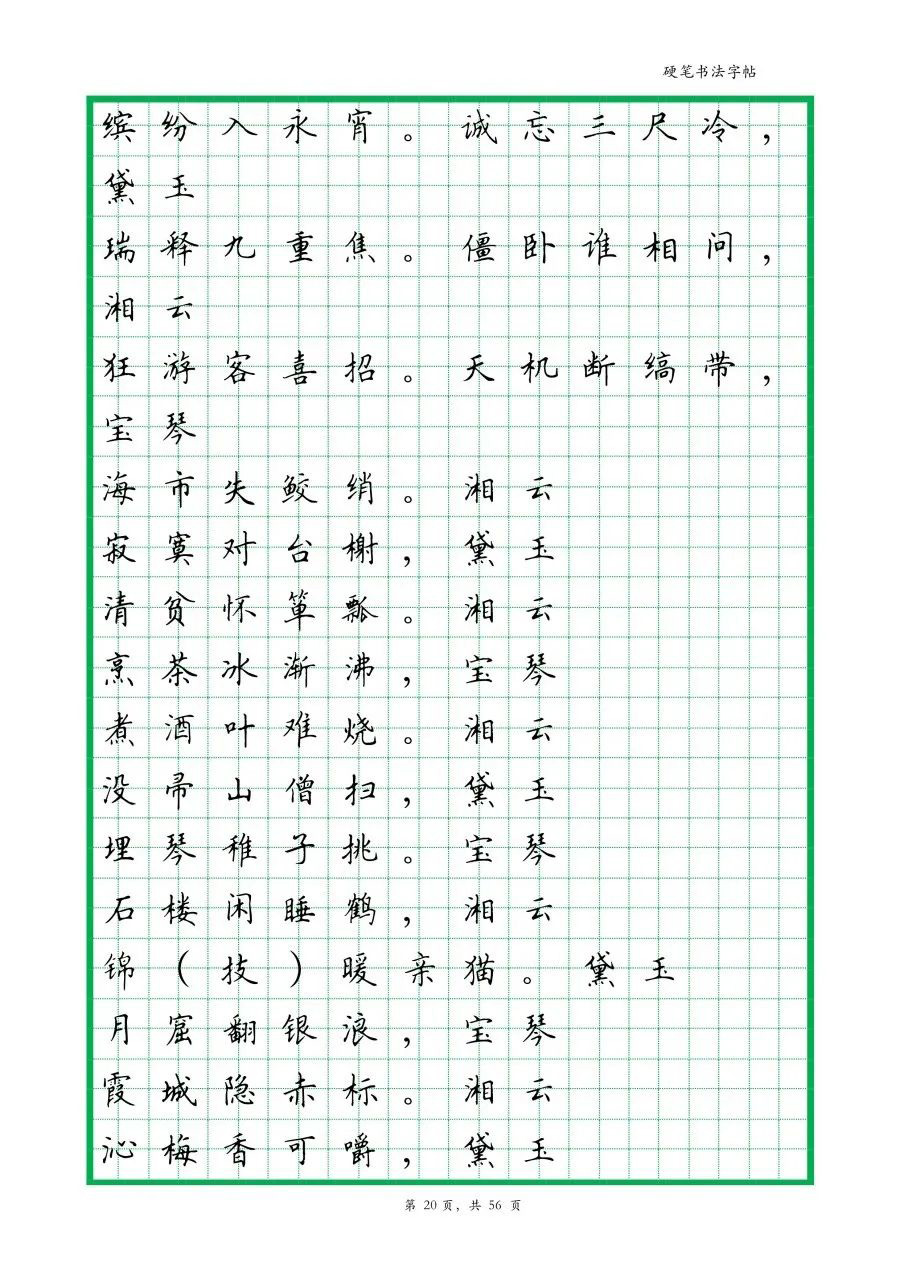 硬笔书法字帖
缤纷入永宵。诚忘三尺冷，
黛玉
瑞释九重焦。僵卧谁相问，
湘云
狂游客喜招。天机断缟带，
宝琴
海市失鲛绡。湘云
寂寞对台榭，黛玉
清贫怀箪瓢。湘云
烹茶冰渐沸，宝琴
煮酒叶难烧。湘云
没帚山僧扫，黛玉
埋琴稚子挑。宝琴
石楼闲睡鹤，湘云
锦（技）暖亲猫。黛玉
月窟翻银浪，宝琴
霞城隐赤标。湘云
沁梅香可嚼，黛玉
第 20 页，共 56 页